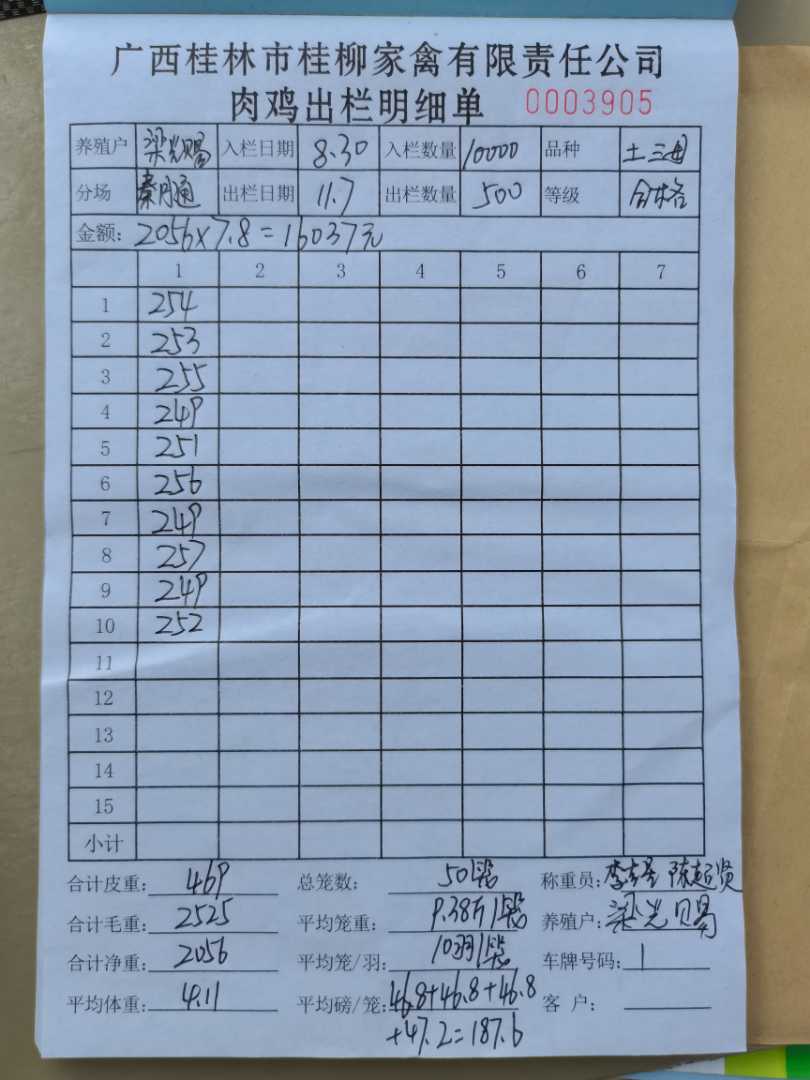 广西桂林市桂柳家禽有限责任公司
肉鸡出栏明细单 0003905
养殖户 梁光赐 入栏日期 8.30 入栏数量 10000 品种 土三母
分场 秦月通 出栏日期 11.7 出栏数量 500 等级 合格
金额: 2056×7.8=16037元
1 2 3 4 5 6 7
1 254
2 253
3 255
4 249
5 251
6 256
7 249
8 257
9 249
10 252
11
12
13
14
15
小计
合计皮重: 469 总笼数: 50笼 称重员: 陈超贤
合计毛重: 2525 平均笼重: 9.38斤/笼 养殖户: 梁光赐
合计净重: 2056 平均笼/羽: 10羽/笼 车牌号码: 1
平均体重: 4.11 平均磅/笼: 46.8+46.8+46.8 客 户:
+47.2=187.6